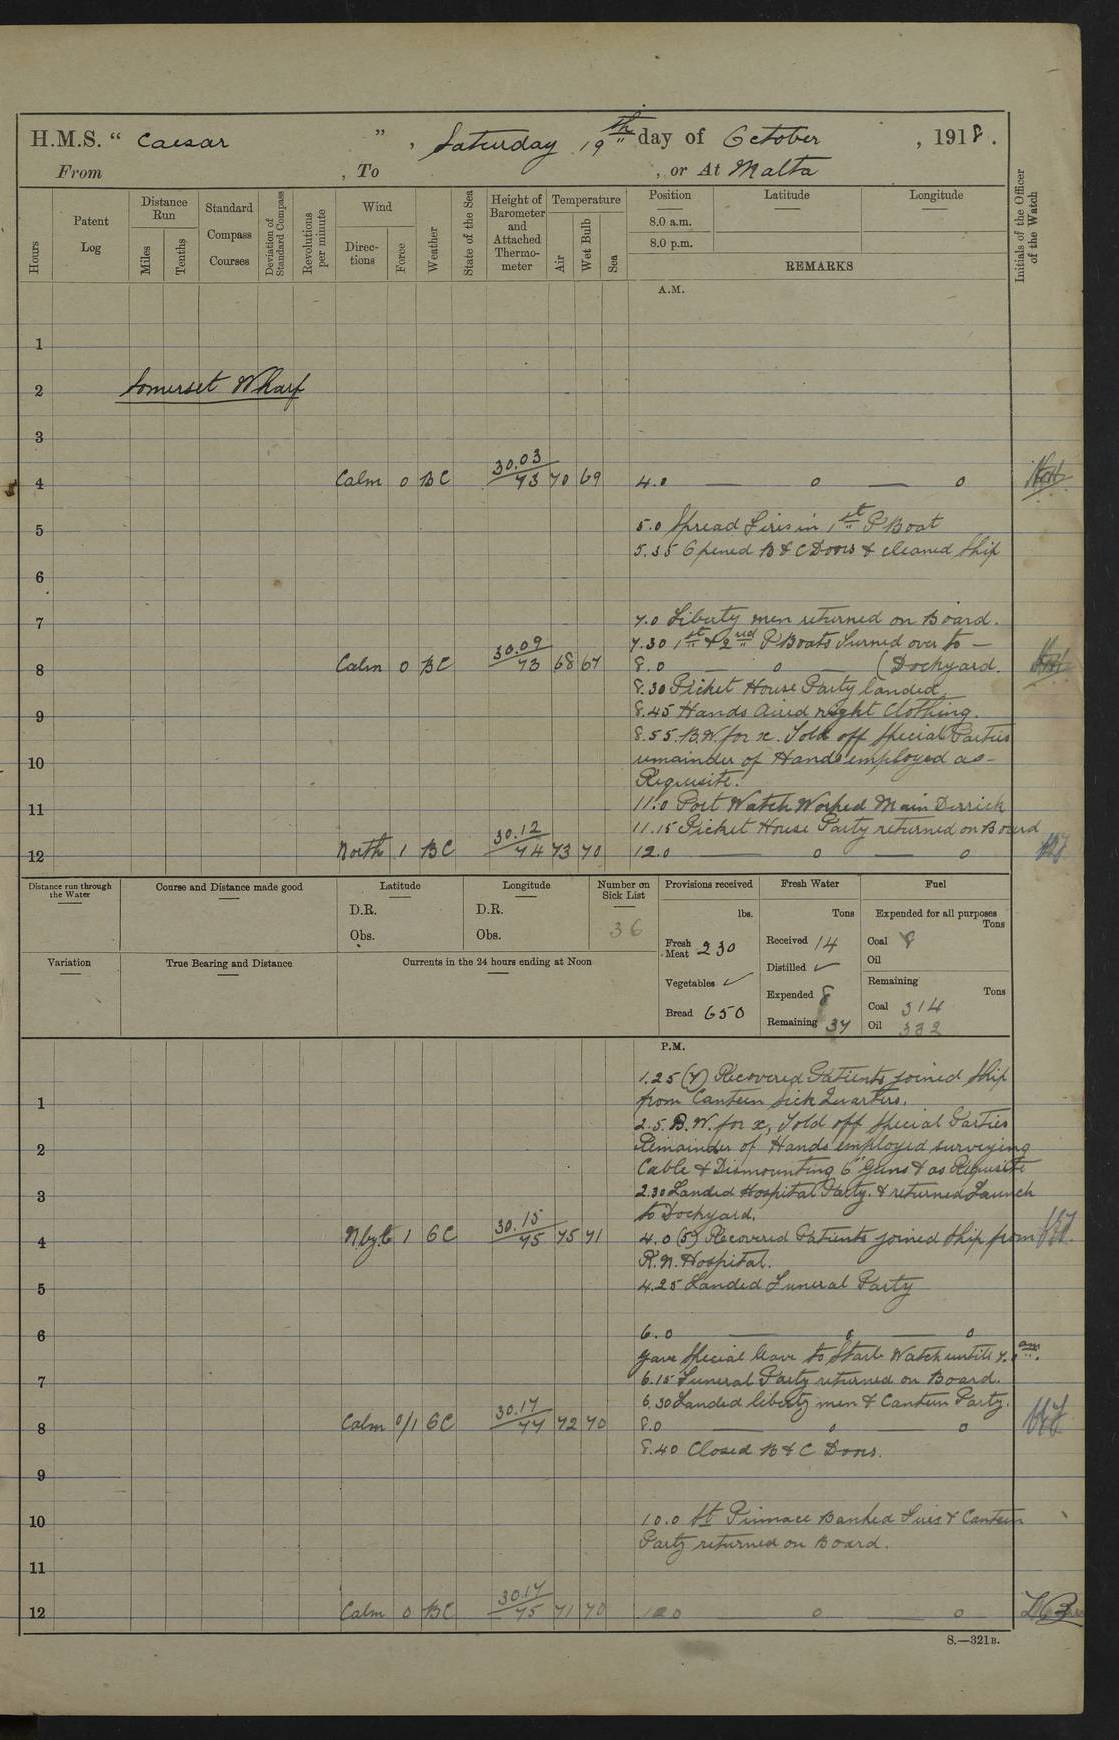 H.M.S. “ Caesar ” , Saturday 19th day of October , 1918.
From , To , or At Malta
Hours
Patent Log
Distance Run
Miles
Tenths
Standard Compass Courses
Deviation of Standard Compass
Revolutions per minute
Wind
Direc- tions
Force
Weather
State of the Sea
Height of Barometer and Attached Thermo- meter
Temperature
Air
Wet Bulb
Sea
Position
8.0 a.m.
8.0 p.m.
Latitude
Longitude
REMARKS
Initials of the Officer of the Watch
A.M.
1
2 Somerset Wharf
3
4 Calm 0 BC 30.03 73 70 69 4.0 — o — o
5 5.0 Spread Fires in 1st P Boat
5.35 Opened B & C Doors & cleaned Ship
6
7 7.0 Liberty men returned on Board.
7.30 1st & 2nd P Boats Turned over to —
8 Calm 0 BC 30.09 73 68 67 8.0 — o — (Dockyard.
8.30 Picket House Party landed.
9 8.45 Hands Aired night Clothing.
8.55. B.W. for x. Told off Special Parties
10 remainder of Hands employed as-
Requisite.
11 11.0 Port Watch Worked Main Derrick
11.15 Picket House Party returned on Board
12 North 1 BC 30.12 74 73 70 12.0 — o — o
Distance run through the Water
Course and Distance made good
Latitude
D.R.
Obs.
Longitude
D.R.
Obs.
Number on Sick List
36
Provisions received
lbs.
Fresh Meat 230
Vegetables ✓
Bread 650
Fresh Water
Tons
Received 14
Distilled ✓
Expended 8
Remaining 37
Fuel
Expended for all purposes
Tons
Coal 8
Oil
Remaining
Tons
Coal 314
Oil 332
Variation
True Bearing and Distance
Currents in the 24 hours ending at Noon
P.M.
1.25 (7) Recovered Patients joined Ship
1 from Canteen Sick Quarters.
2.5. B.W. for x, Told off Special Parties
2 Remainder of Hands employed surveying
Cable & Dismounting 6" Guns & as Requisite
3 2.30 Landed Hospital Party. & returned Launch
to Dockyard.
4 NbyE 1 BC 30.15 75 75 71 4.0 (5) Recovered Patients joined Ship from
R.N. Hospital.
5 4.25 Landed Funeral Party
6 6.0 — o — o
Gave Special leave to Starb Watch until 7.0 am.
7 6.15 Funeral Party returned on Board.
6.30 Landed liberty men & Canteen Party.
8 Calm 0/1 BC 30.17 77 72 70 8.0 — o — o
8.40 Closed B & C Doors.
9
10 10.0 St Pinnace Banked Fires & Canteen
Party returned on Board.
11
12 Calm 0 BC 30.17 75 71 70 12.0 — o — o
S.—321B.